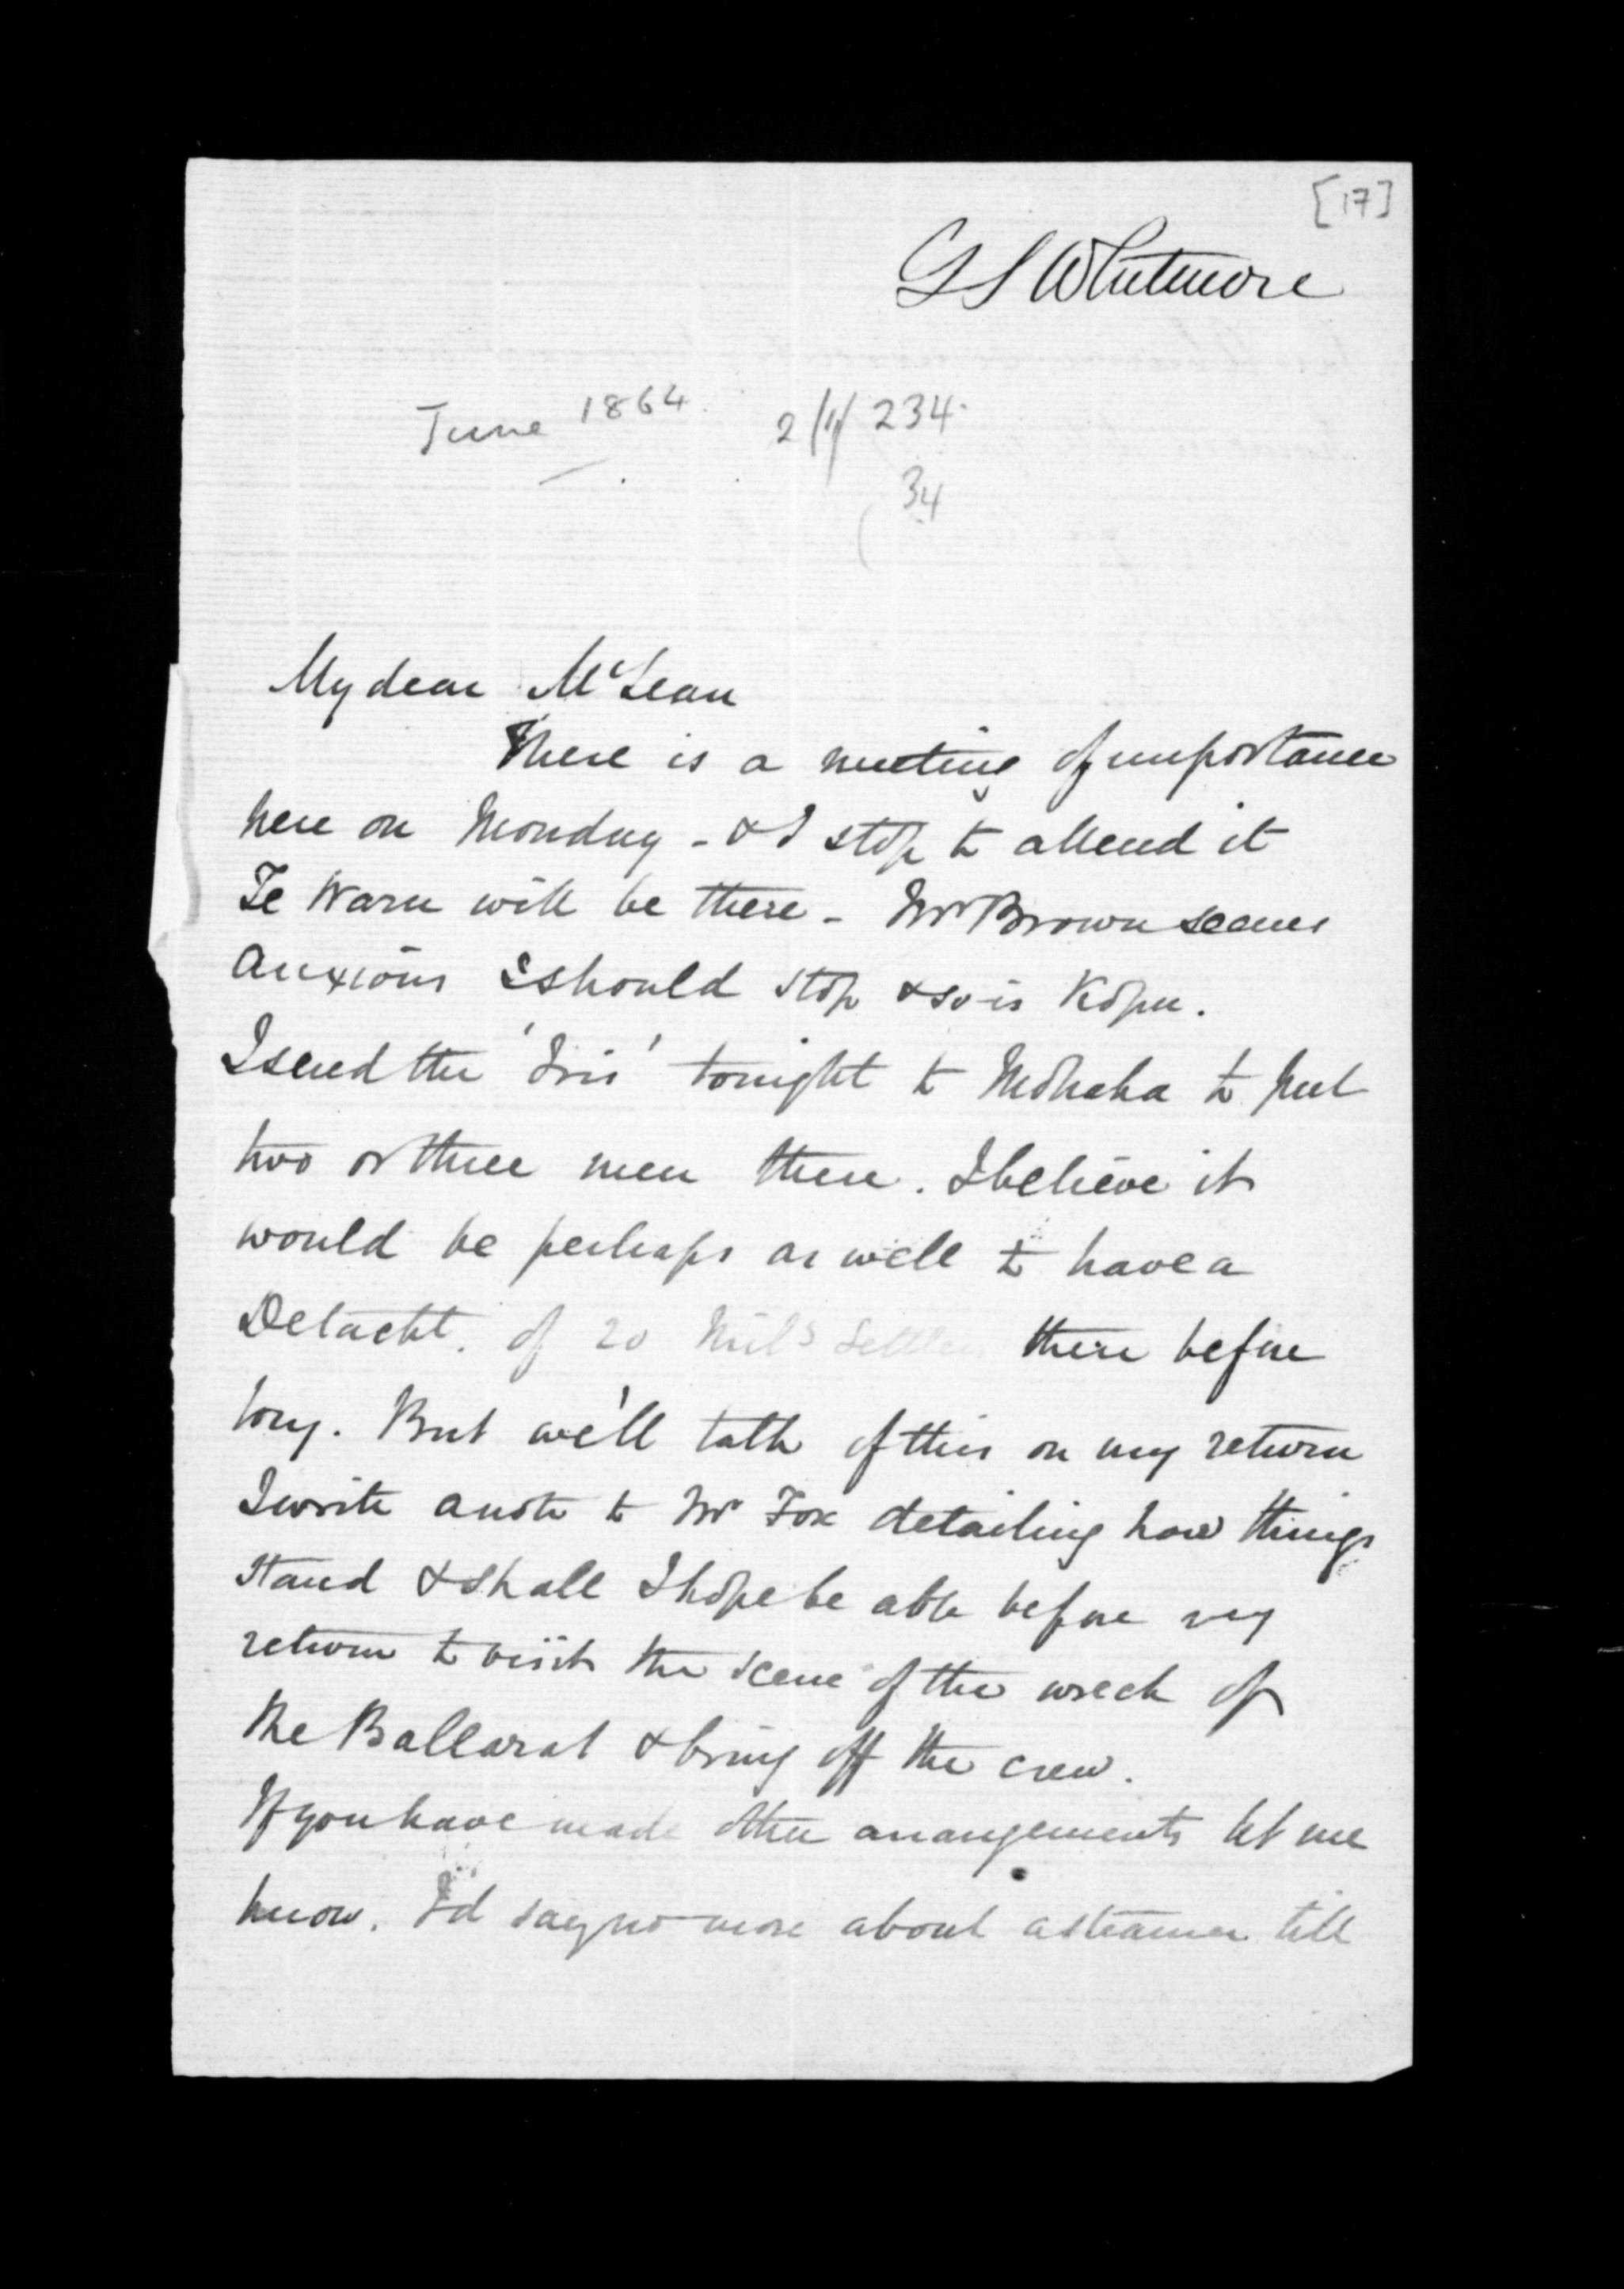 [17]
G S Whitmore
June 1864. 234.
34
My dear McLean
There is a meeting of importance
here on Monday - & I stop to attend it
Te Waru will be there - Mr Brown seems
anxious I should stop & so is Kopu.
I send the 'Iris' tonight to Mohaka to put
two or three men there. I believe it
would be perhaps as well to have a
Detacht. of 20 Mil.s Settlers there before
long. But we'll talk of this on my return
I write a note to Mr Fox detailing how things
stand & shall I hope be able before my
return to visit the scene of the wreck of
the Ballarat & bring off the crew.
If you have made other arrangements let me
know. I'd say no more about a steamer till